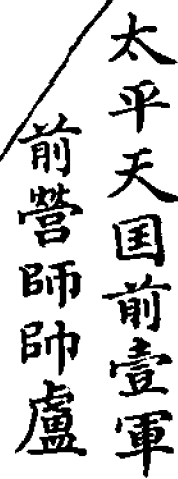 太平天囯前壹軍
前營師帥盧